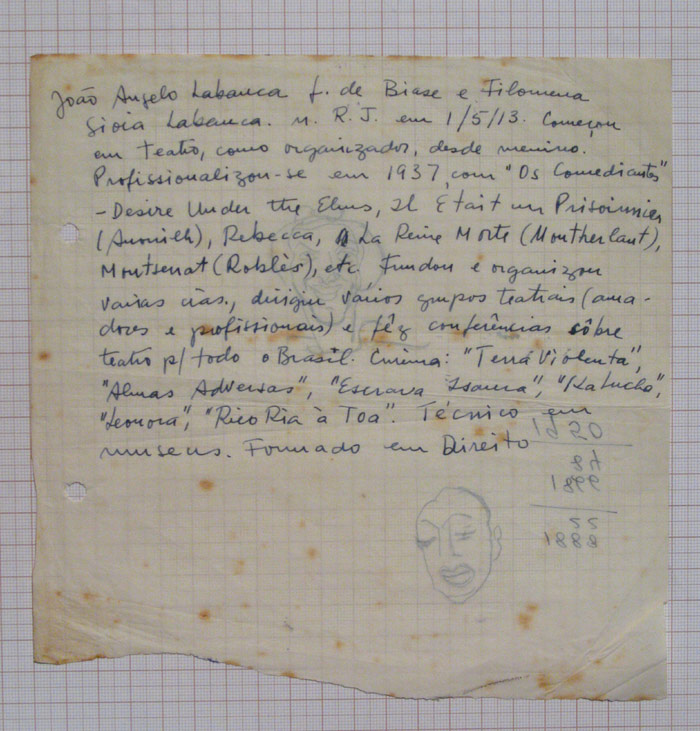 João Angelo Labanca f. de Biase e Filomena
Gioia Labanca. n. R.J. em 1/5/13. Começou
em Teatro, como organizador, desde menino.
Profissionalizou-se em 1937, com "Os Comediantes"
- Desire Under the Elms, Il Était un Prisonnier
(Anouilh), Rebecca, La Reine Morte (Montherlant),
Montserrat (Roblès), etc. Fundou e organizou
várias cias., dirigiu vários grupos teatrais (ama-
dores e profissionais) e fêz conferências sôbre
teatro p/ todo o Brasil. Cinema: "Terra Violenta",
"Almas Adversas", "Escrava Isaura", "Katucha",
"Leonora", "Rico Ria à Toa". Técnico em
museus. Formado em Direito
1888